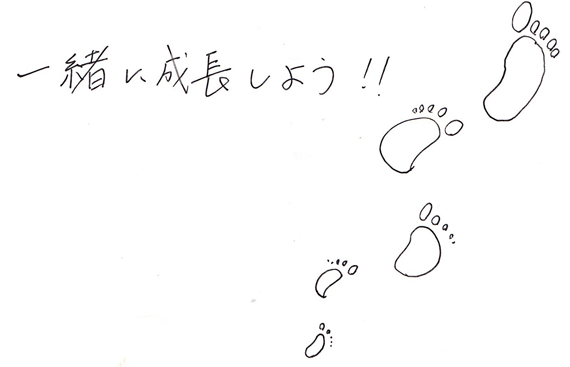 一緒に成長しよう!!